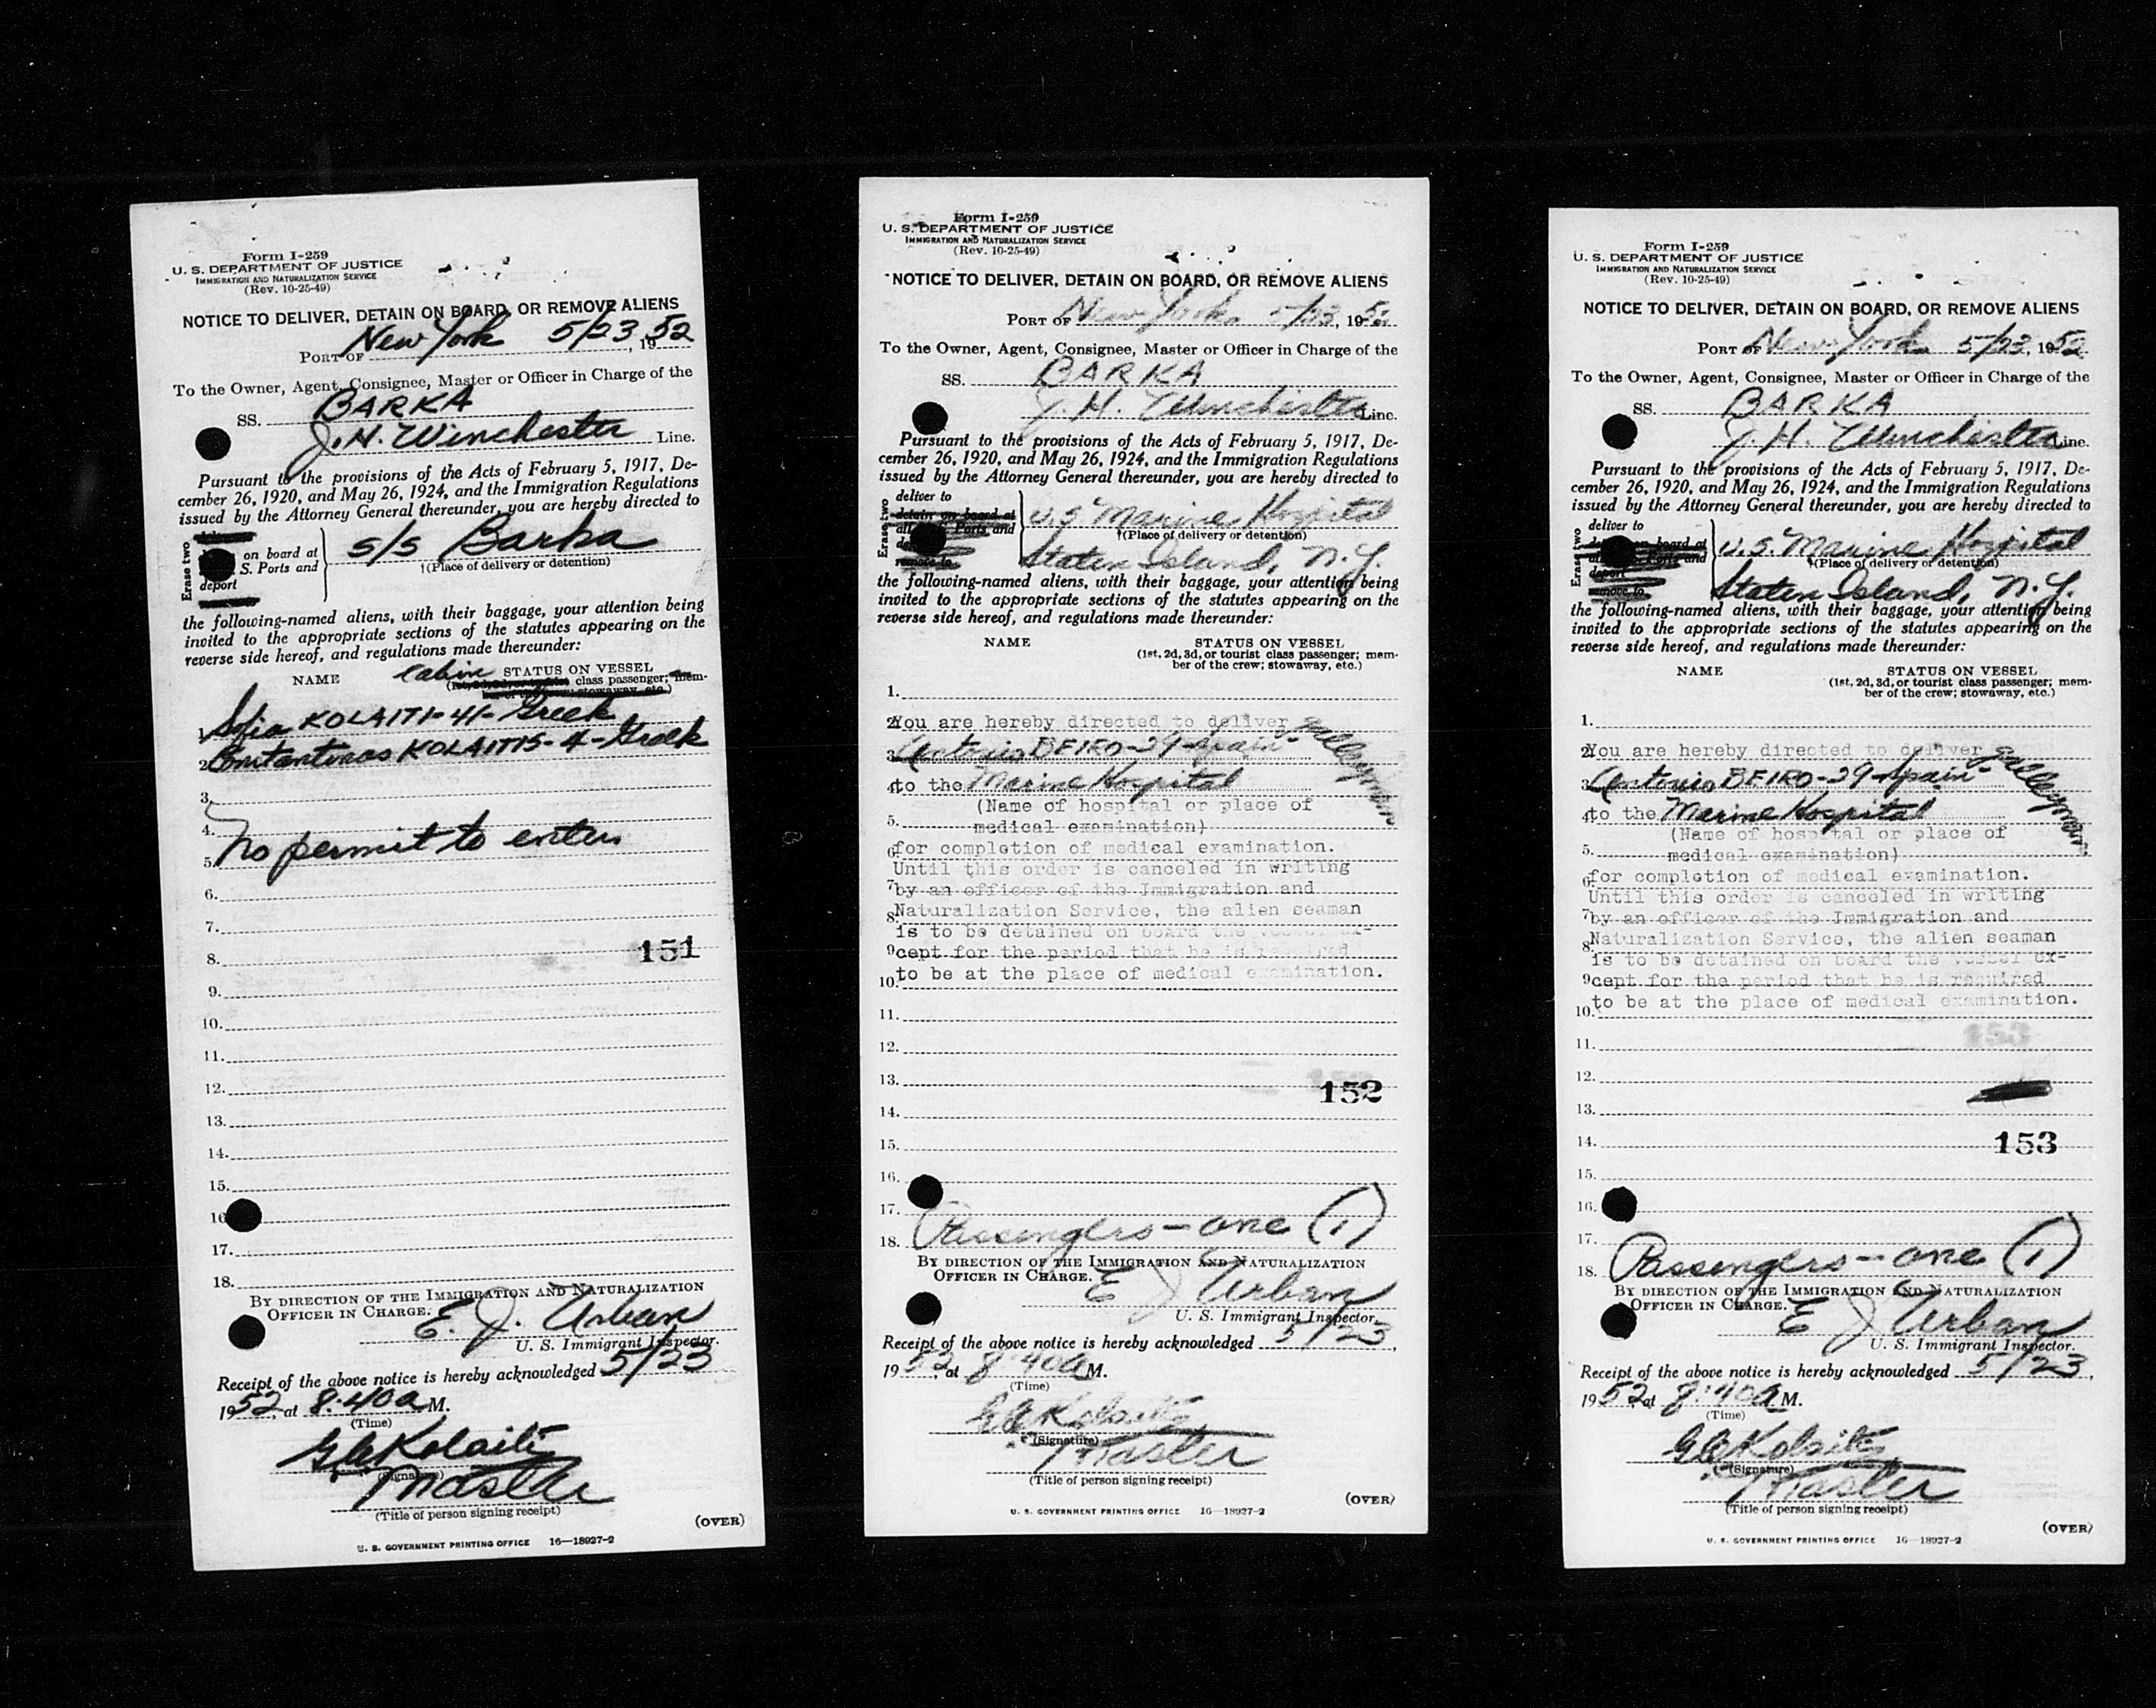 Form I-259
U. S. DEPARTMENT OF JUSTICE
IMMIGRATION AND NATURALIZATION SERVICE
(Rev. 10-25-49)
NOTICE TO DELIVER, DETAIN ON BOARD, OR REMOVE ALIENS
PORT OF New York 5/23, 1952
To the Owner, Agent, Consignee, Master or Officer in Charge of the
SS. BARKA
J. H. Winchester Line.
Pursuant to the provisions of the Acts of February 5, 1917, De-
cember 26, 1920, and May 26, 1924, and the Immigration Regulations
issued by the Attorney General thereunder, you are hereby directed to
Erase two
on board at
S. Ports and
deport
s/s Barka
†(Place of delivery or detention)
the following-named aliens, with their baggage, your attention being
invited to the appropriate sections of the statutes appearing on the
reverse side hereof, and regulations made thereunder:
NAME cabin STATUS ON VESSEL
(1st, 2d, 3d, or tourist class passenger; mem-
ber of the crew; stowaway, etc.)
1. Sofia KOLAITI-41-Greek
2. Constantinos KOLAITIS-4-Greek
3.
4. No permit to enter
5.
6.
7.
8. 151
9.
10.
11.
12.
13.
14.
15.
16
17.
18.
BY DIRECTION OF THE IMMIGRATION AND NATURALIZATION
OFFICER IN CHARGE.
E. J. Urban
U. S. Immigrant Inspector.
Receipt of the above notice is hereby acknowledged 5/23
1952, at 8:40a M.
(Time)
G A Kolaiti
(Signature)
Master
(Title of person signing receipt)
(OVER)
U. S. GOVERNMENT PRINTING OFFICE 16—18927-2
Form I-259
U. S. DEPARTMENT OF JUSTICE
IMMIGRATION AND NATURALIZATION SERVICE
(Rev. 10-25-49)
NOTICE TO DELIVER, DETAIN ON BOARD, OR REMOVE ALIENS
PORT OF New York 5/23, 1952
To the Owner, Agent, Consignee, Master or Officer in Charge of the
SS. BARKA
J. H. Winchester Line.
Pursuant to the provisions of the Acts of February 5, 1917, De-
cember 26, 1920, and May 26, 1924, and the Immigration Regulations
issued by the Attorney General thereunder, you are hereby directed to
Erase two
deliver to
detain on board at
all Ports and
remove to
U.S. Marine Hospital
†(Place of delivery or detention)
Staten Island, N.Y.
the following-named aliens, with their baggage, your attention being
invited to the appropriate sections of the statutes appearing on the
reverse side hereof, and regulations made thereunder:
NAME STATUS ON VESSEL
(1st, 2d, 3d, or tourist class passenger; mem-
ber of the crew; stowaway, etc.)
1.
2. You are hereby directed to deliver
3. Antonio BEIRO-29-Spain- galleyman
4. to the Marine Hospital
(Name of hospital or place of
5. medical examination)
6. for completion of medical examination.
Until this order is canceled in writing
7. by an officer of the Immigration and
8. Naturalization Service, the alien seaman
is to be detained on board the vessel ex-
9. cept for the period that he is required
10. to be at the place of medical examination.
11.
12.
13. 152
14.
15.
16.
17.
18. Passengers - one (1)
BY DIRECTION OF THE IMMIGRATION AND NATURALIZATION
OFFICER IN CHARGE.
E J Urban
U. S. Immigrant Inspector.
Receipt of the above notice is hereby acknowledged 5/23,
1952, at 8:40a M.
(Time)
G A Kolaiti
(Signature)
Master
(Title of person signing receipt)
(OVER)
U. S. GOVERNMENT PRINTING OFFICE 16—18927-2
Form I-259
U. S. DEPARTMENT OF JUSTICE
IMMIGRATION AND NATURALIZATION SERVICE
(Rev. 10-25-49)
NOTICE TO DELIVER, DETAIN ON BOARD, OR REMOVE ALIENS
PORT OF New York 5/23, 1952
To the Owner, Agent, Consignee, Master or Officer in Charge of the
SS. BARKA
J. H. Winchester Line.
Pursuant to the provisions of the Acts of February 5, 1917, De-
cember 26, 1920, and May 26, 1924, and the Immigration Regulations
issued by the Attorney General thereunder, you are hereby directed to
Erase two
deliver to
on board at
Ports and
deport
remove to
U.S. Marine Hospital
†(Place of delivery or detention)
Staten Island, N.Y.
the following-named aliens, with their baggage, your attention being
invited to the appropriate sections of the statutes appearing on the
reverse side hereof, and regulations made thereunder:
NAME STATUS ON VESSEL
(1st, 2d, 3d, or tourist class passenger; mem-
ber of the crew; stowaway, etc.)
1.
2. You are hereby directed to deliver
3. Antonio BEIRO-29-Spain- galleyman
4. to the Marine Hospital
(Name of hospital or place of
5. medical examination)
6. for completion of medical examination.
Until this order is canceled in writing
7. by an officer of the Immigration and
8. Naturalization Service, the alien seaman
is to be detained on board the vessel ex-
9. cept for the period that he is required
10. to be at the place of medical examination.
153
11.
12.
13.
14. 153
15.
16.
17.
18. Passengers - one (1)
BY DIRECTION OF THE IMMIGRATION AND NATURALIZATION
OFFICER IN CHARGE.
E J Urban
U. S. Immigrant Inspector.
Receipt of the above notice is hereby acknowledged 5/23,
1952, at 8:40a M.
(Time)
G A Kolaiti
(Signature)
Master
(Title of person signing receipt)
(OVER)
U. S. GOVERNMENT PRINTING OFFICE 16—18927-2